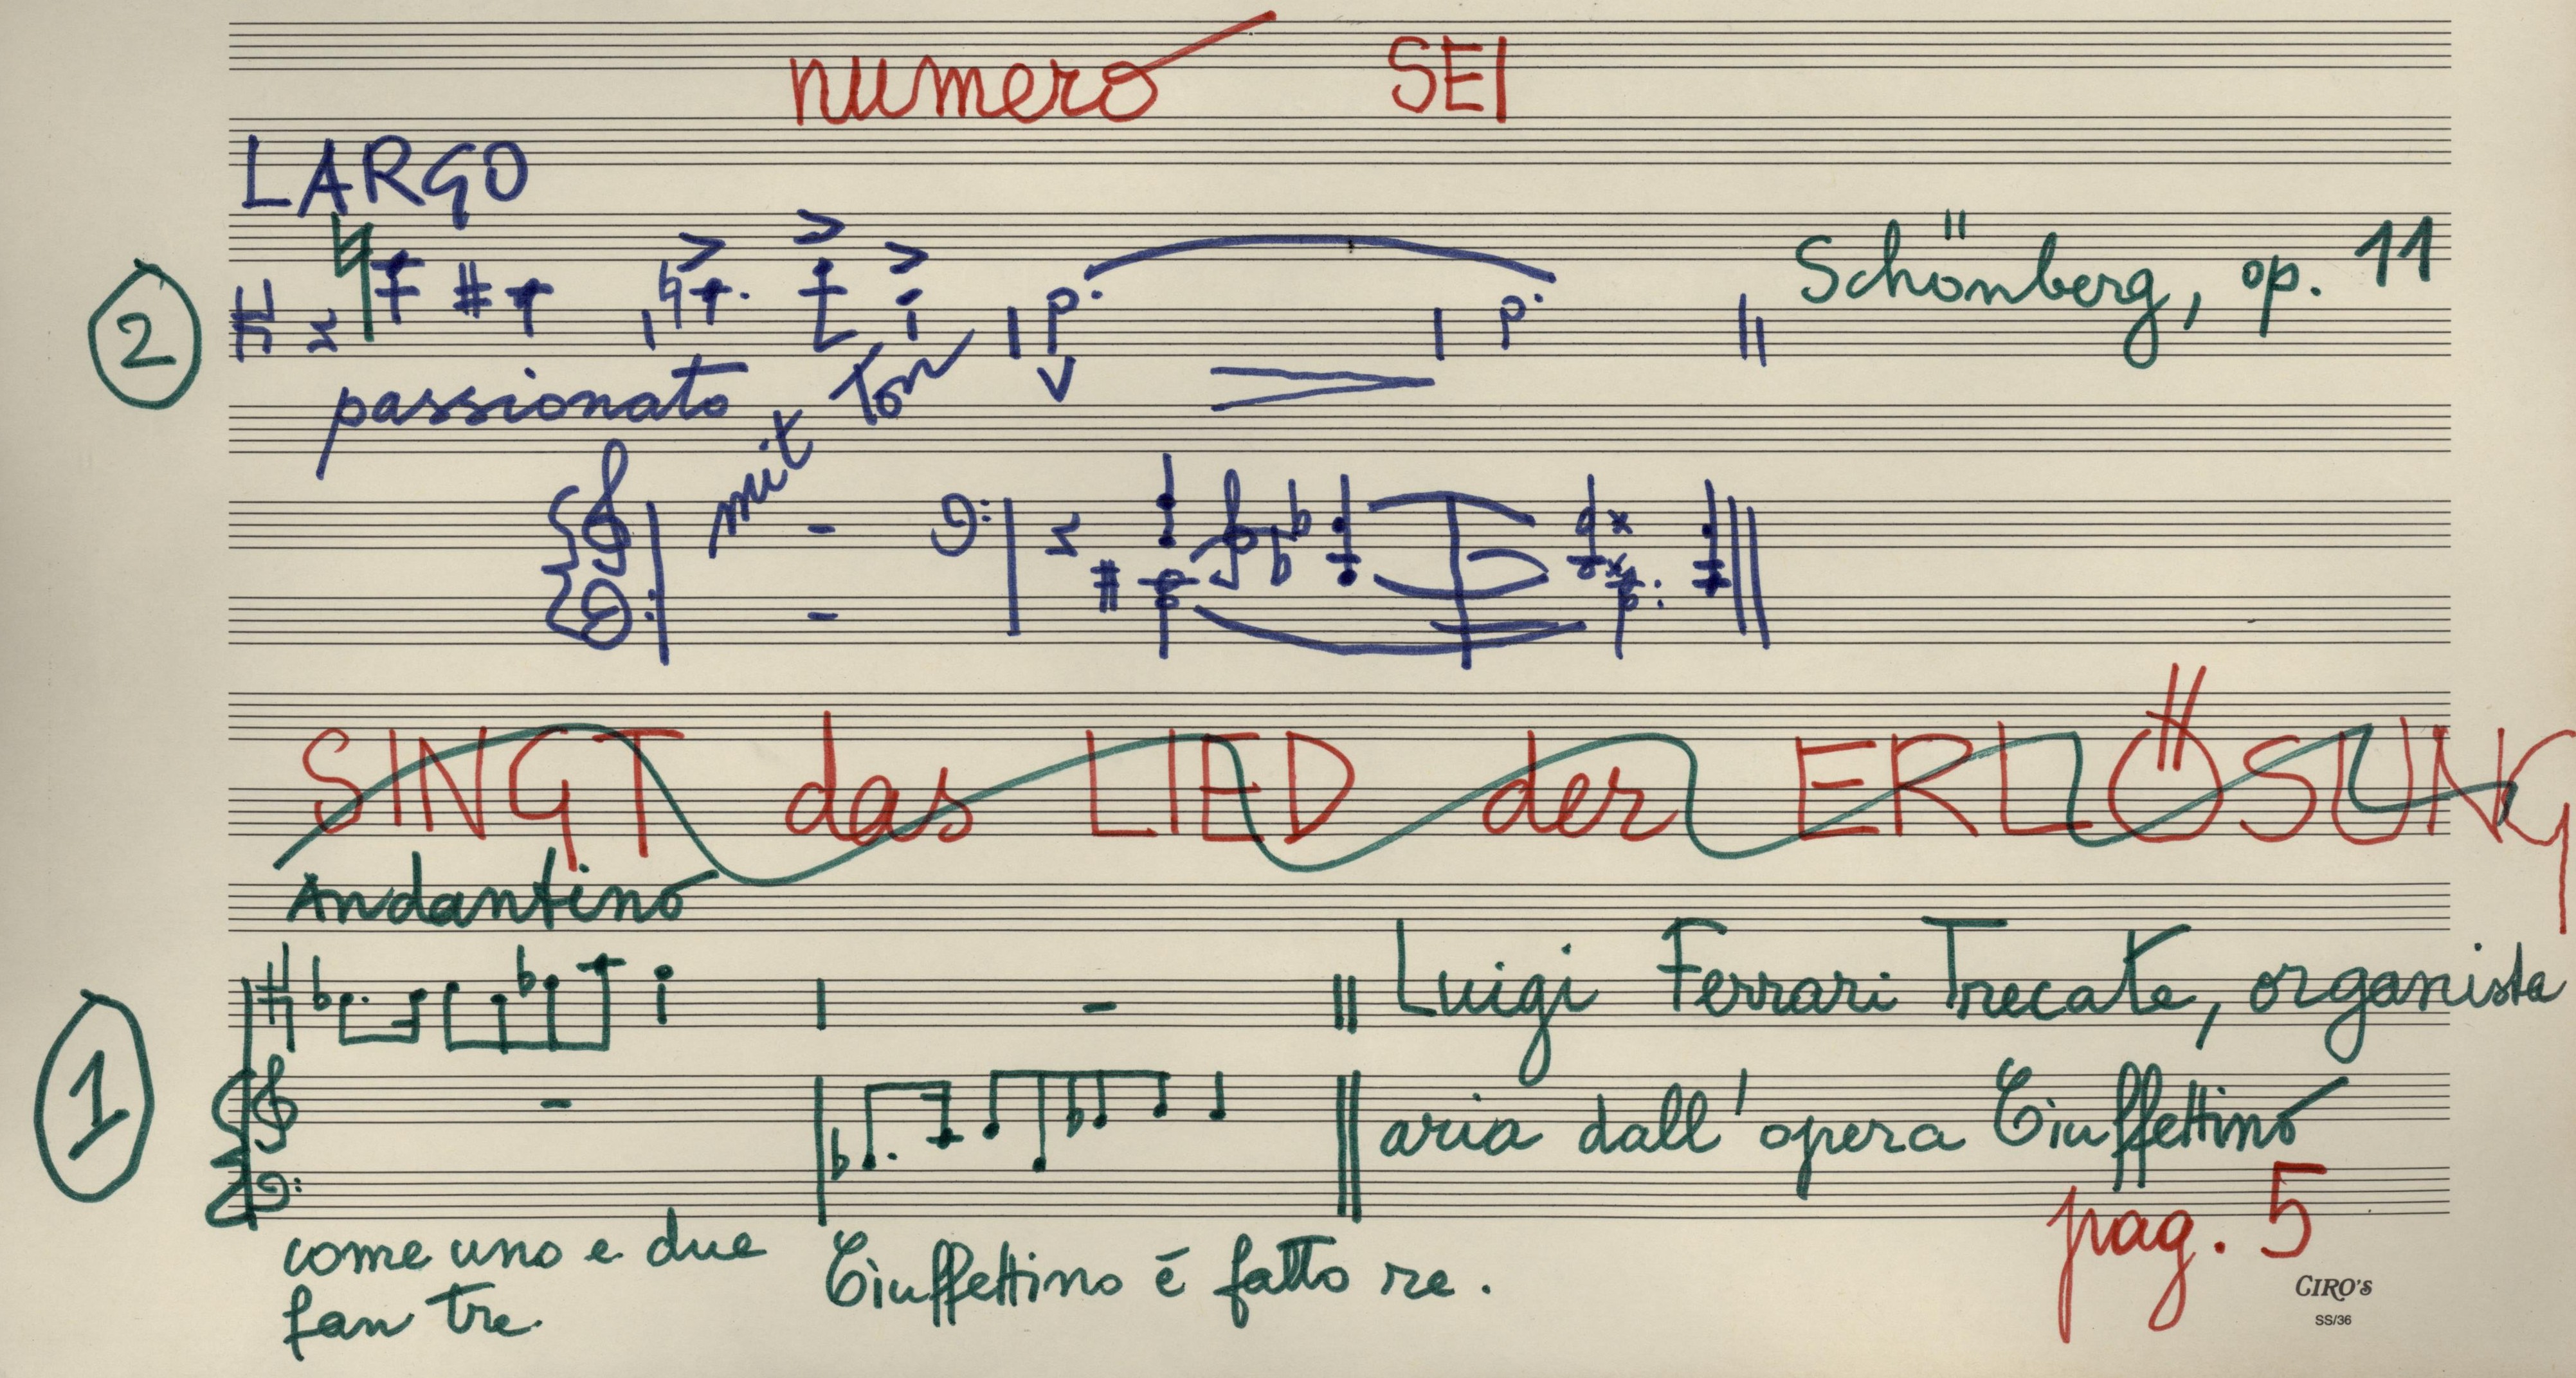 numero SEI
LARGO
2
Schönberg, op. 11
passionato
mit Ton
SINGT das LIED der ERLÖSUNG
Andantino
1
Luigi Ferrari Trecate, organista
aria dall'opera Ciuffettino
pag. 5
come uno e due
fan tre.
Ciuffettino é fatto re.
CIRO's
SS/36